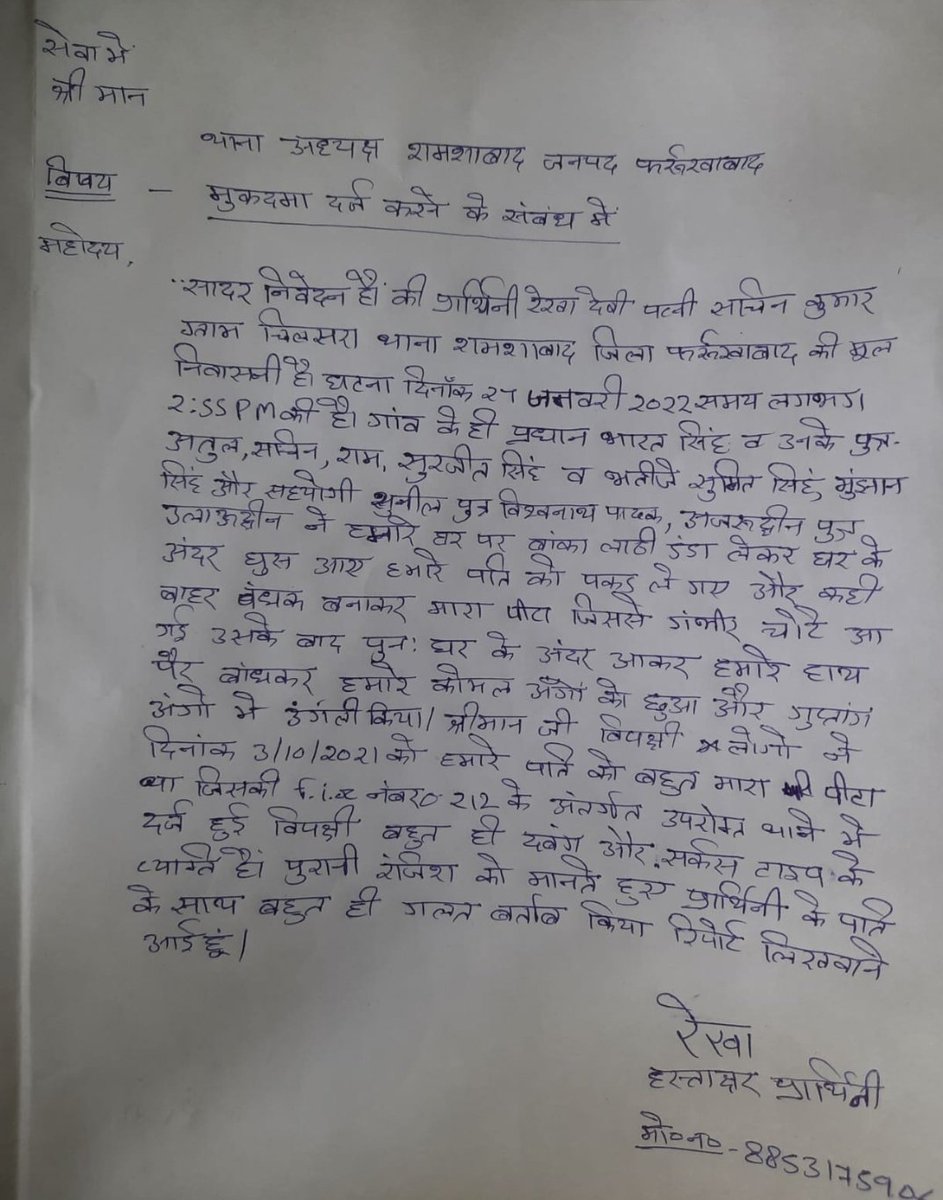 सेवा में
श्री मान
थाना अध्यक्ष शमशाबाद जनपद फर्रुखाबाद
विषय - मुकदमा दर्ज करने के संबंध में
महोदय,
सादर निवेदन है। की प्रार्थिनी रेखा देवी पत्नी सचिन कुमार
ग्राम चिलसरा थाना शमशाबाद जिला फर्रुखाबाद की मूल
निवासनी है। घटना दिनाँक 27 जनवरी 2022 समय लगभग
2:55 PM की है। गांव के ही प्रधान भारत सिंह व उनके पुत्र-
अतुल, सचिन, राम, सुरजीत सिंह व भतीजे सुमित सिंह, मुंझान
सिंह और सहयोगी सुनील पुत्र विश्वनाथ पाठक, अजरुद्दीन पुत्र
उलाऊद्दीन ने हमारे घर पर बांका लाठी डंडा लेकर घर के
अंदर घुस आए हमारे पति को पकड़ ले गए और कही
बाहर बंधक बनाकर मारा पीटा जिससे गंभीर चोटे आ
गई उसके बाद पुनः घर के अंदर आकर हमारे हाथ
पैर बांधकर हमारे कोमल अँगों को छुआ और गुप्तांग
अंगो मे उंगली किया। श्रीमान जी विपक्षी लोगो ने
दिनांक 3/10/2021 को हमारे पति को बहुत मारा पीटा
था जिसकी f.i.r नंबर 0212 के अंतर्गत उपरोक्त थाने मे
दर्ज हुई विपक्षी बहुत ही दबंग और सर्कस टाइप के
व्यक्ति है। पुरानी रंजिश को मानते हुए प्रार्थिनी के पति
के साथ बहुत ही गलत बर्ताब किया रिपोर्ट लिखवाने
आई हूं।
रेखा
हस्ताक्षर प्रार्थिनी
मो०न०-885317590